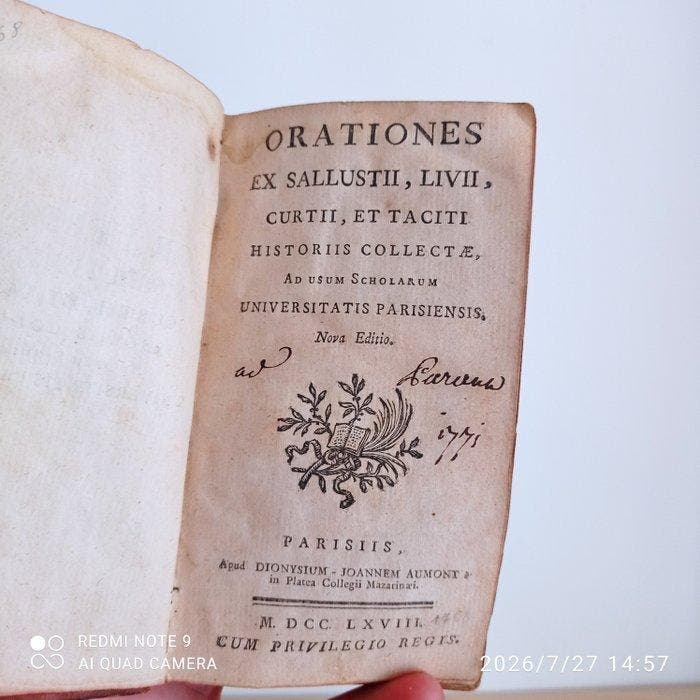 68
ORATIONES
EX SALLUSTII, LIVII,
CURTII, ET TACITI
HISTORIIS COLLECTÆ,
AD USUM SCHOLARUM
UNIVERSITATIS PARISIENSIS.
Nova Editio.
ad
1771
PARISIIS,
Apud DIONYSIUM-JOANNEM AUMONT
in Platea Collegii Mazarinæi.
M. DCC. LXVIII.
CUM PRIVILEGIO REGIS.
REDMI NOTE 9
AI QUAD CAMERA
2026/7/27 14:57